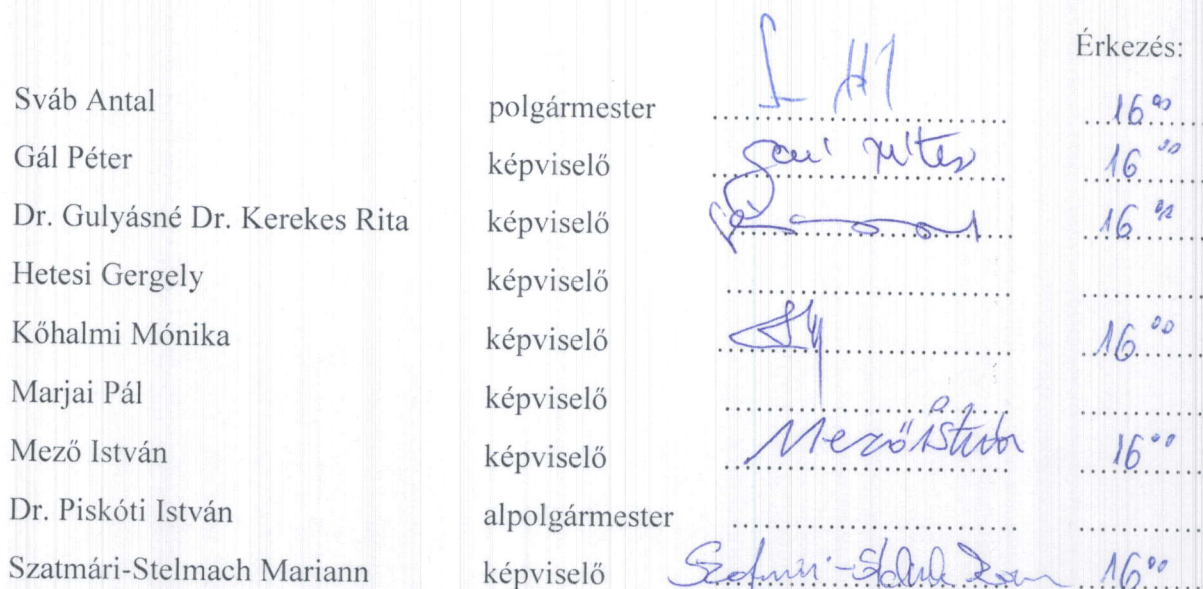 Érkezés:
Sváb Antal polgármester 16⁰⁰
Gál Péter képviselő 16⁰⁰
Dr. Gulyásné Dr. Kerekes Rita képviselő 16
Hetesi Gergely képviselő
Kőhalmi Mónika képviselő 16⁰⁰
Marjai Pál képviselő
Mező István képviselő Mező István 16⁰⁰
Dr. Piskóti István alpolgármester
Szatmári-Stelmach Mariann képviselő 16⁰⁰